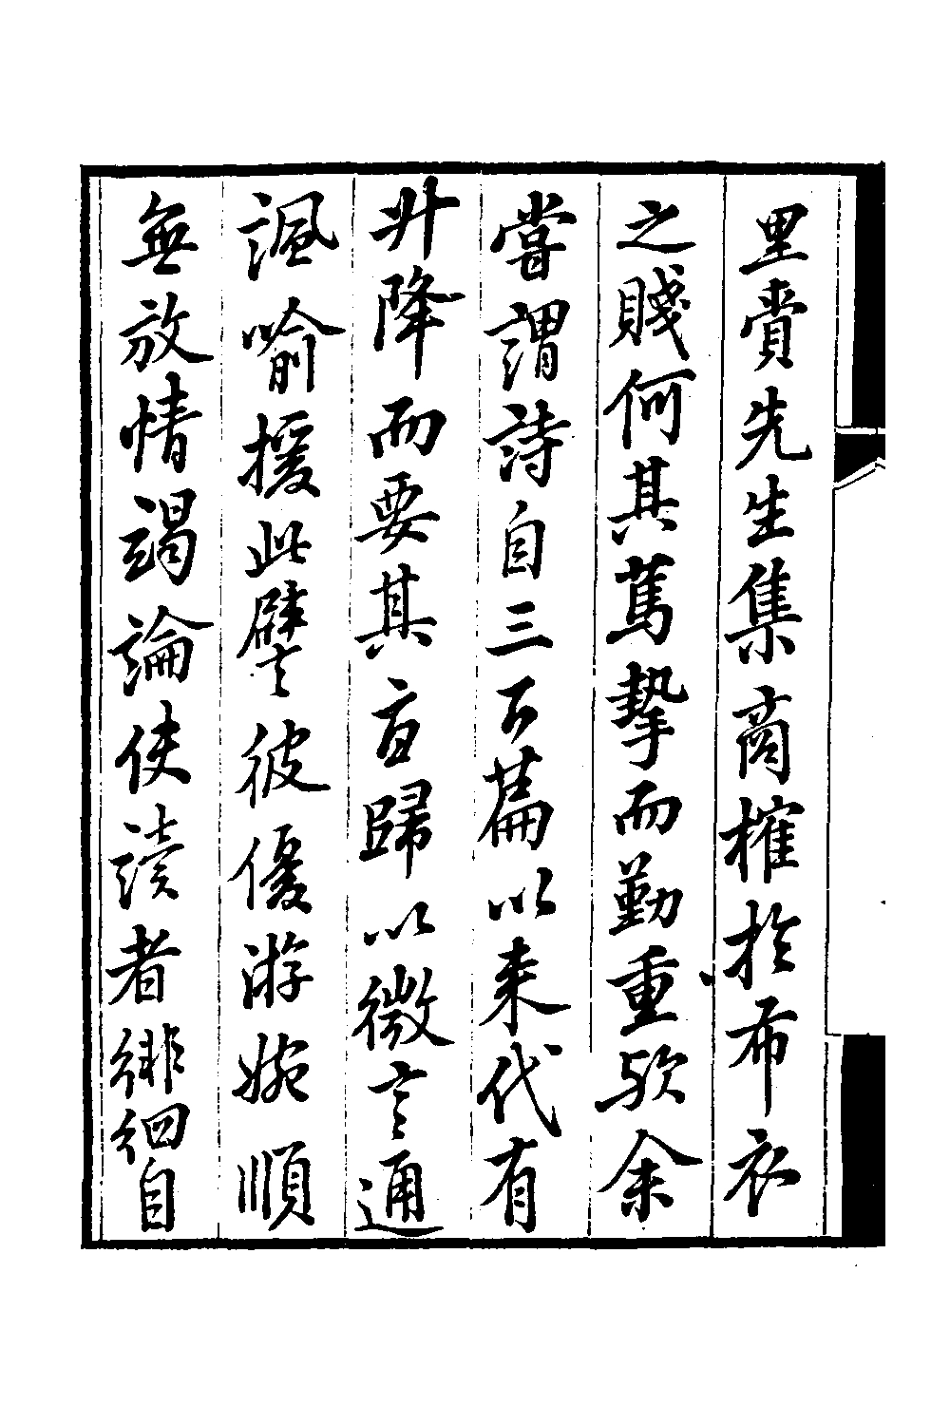 里賫先生集商榷於布衣
之賤何其篤摯而勤重欤余
嘗謂詩自三百篇以來代有
升降而要其旨歸以微言通
諷喻援此譬彼優游婉順
無放情竭論使讀者徘徊自